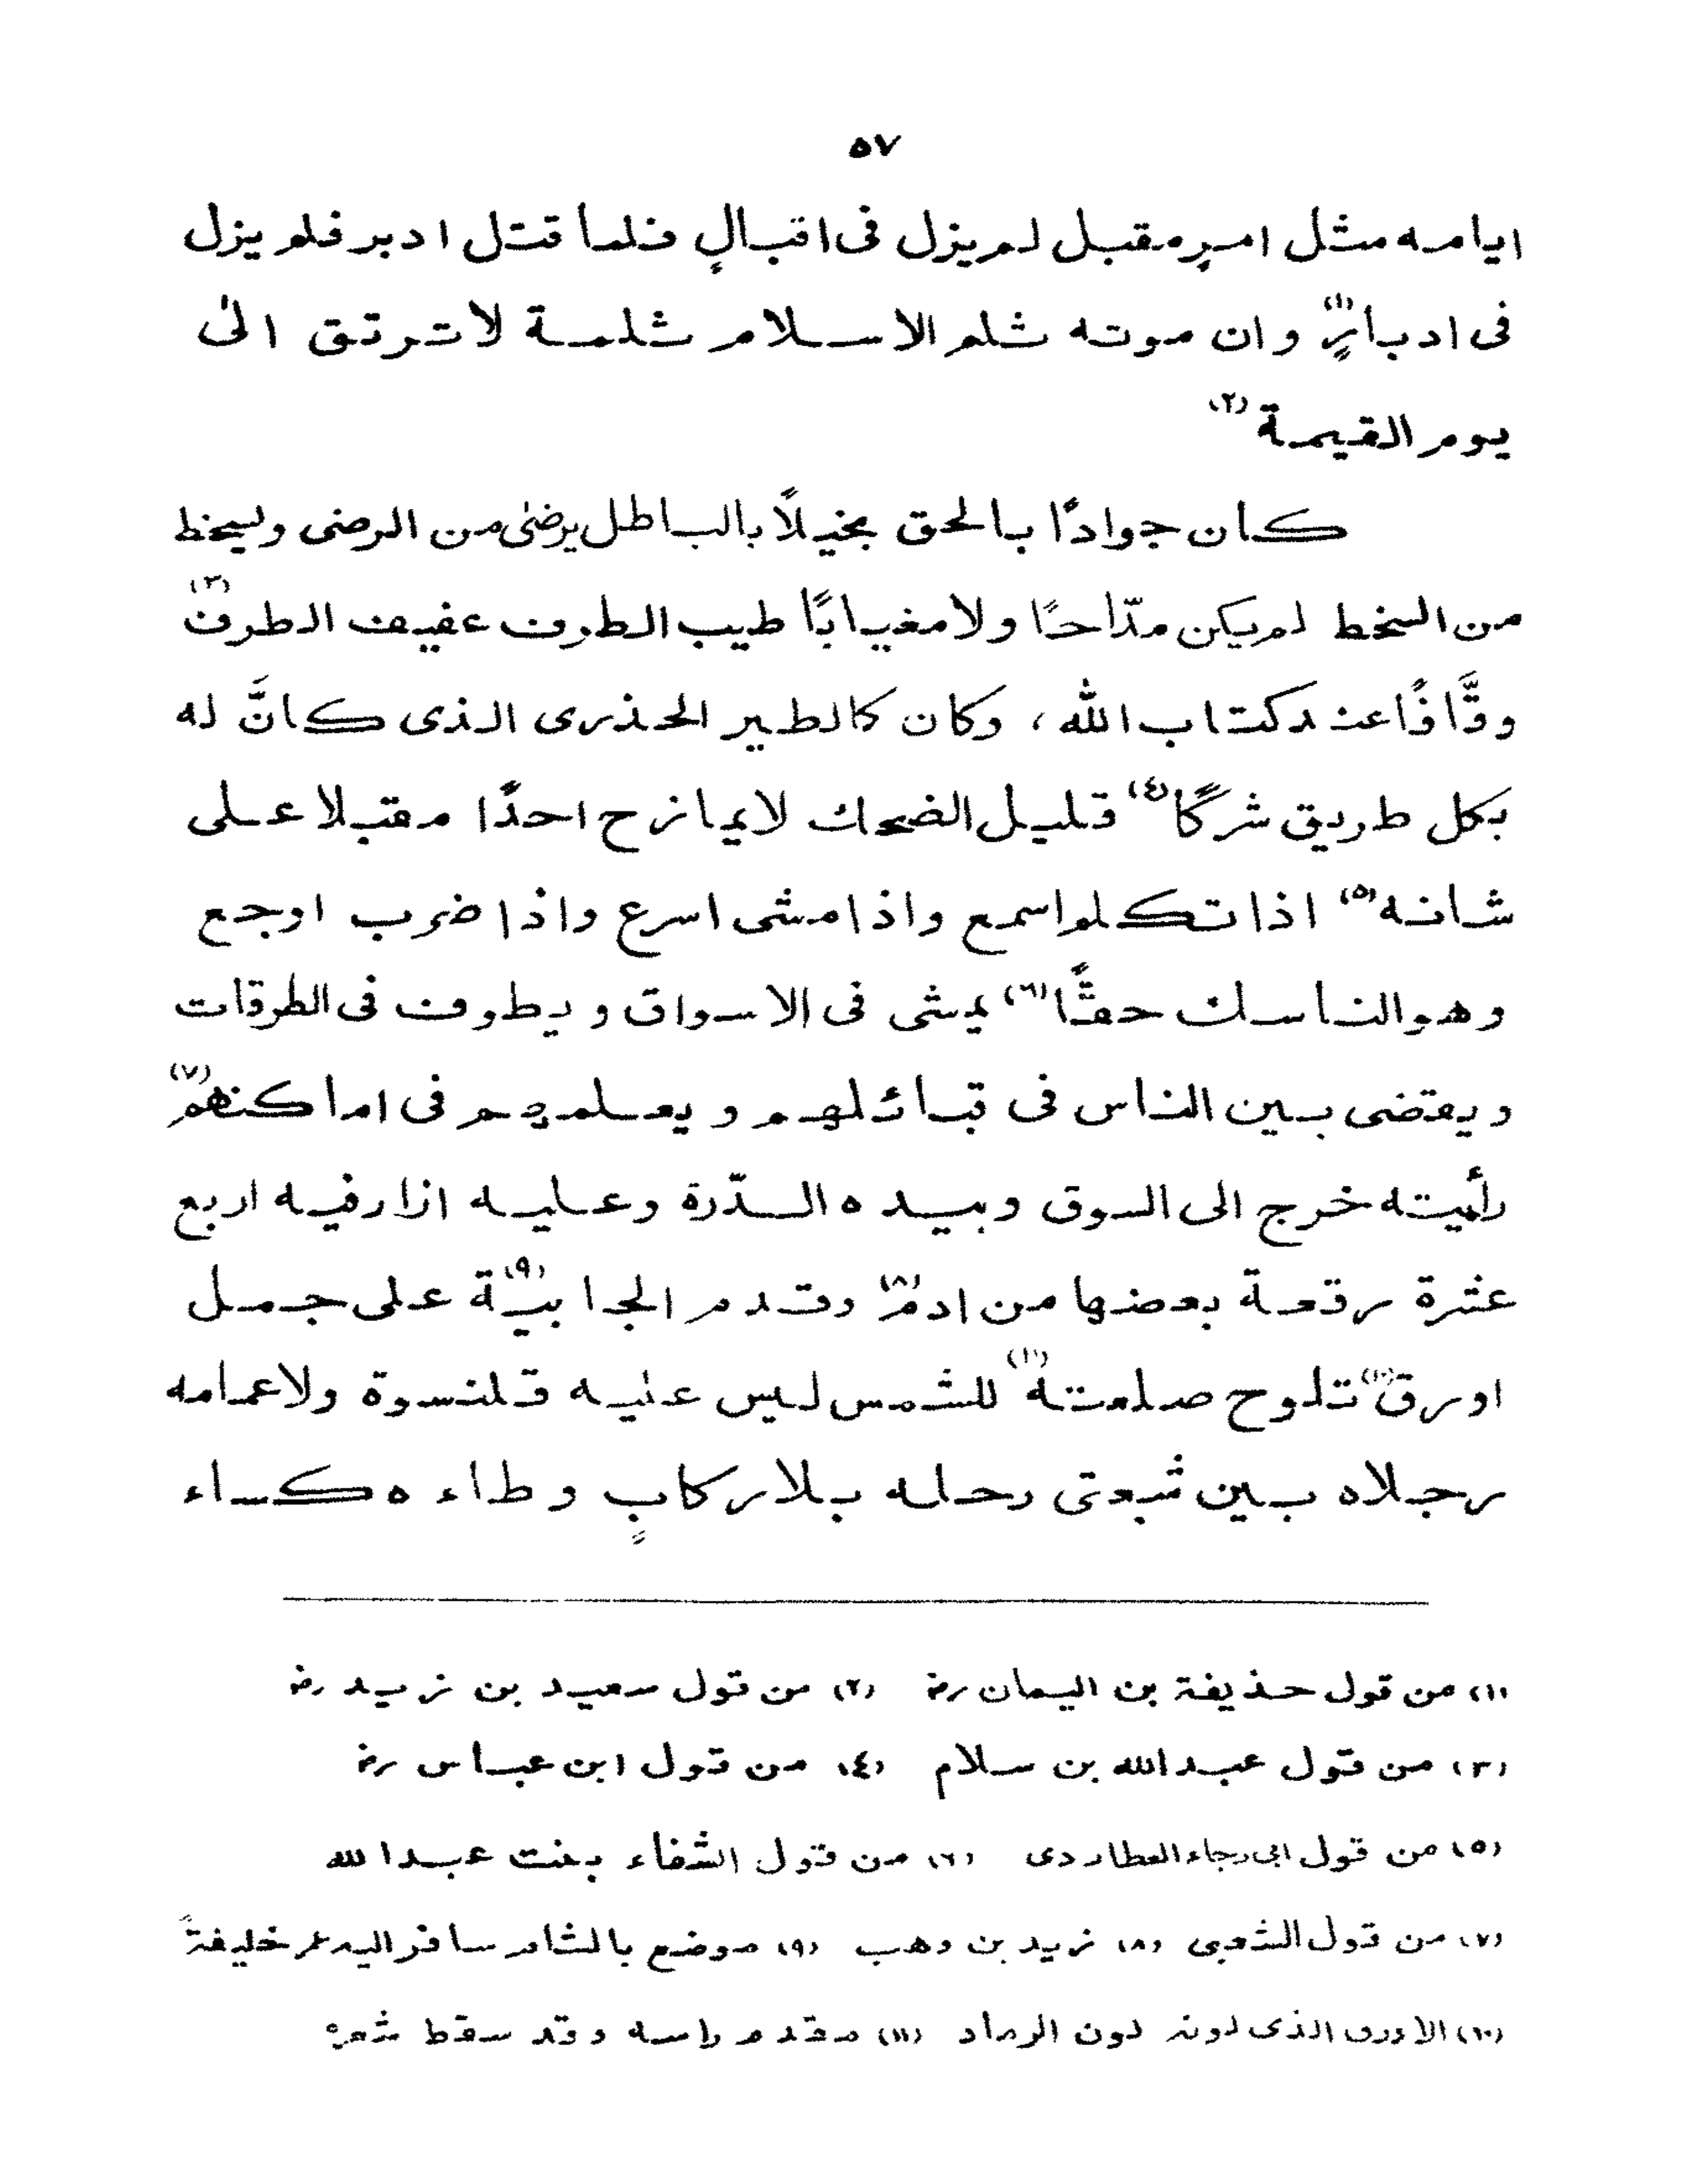 ٥٧
ايامه مثل امرٍ مقبل لم يزل فى اقبالٍ فلما قتل ادبر فلم يزل
فى ادبارٍ (١) وان موته ثلم الاسلام ثلمة لا ترتق الىٰ
يوم القيمة (٢)
كان جوادًا بالحق بخيلاً بالباطل يرضىٰ من الرضى ويسخط
من السخط لم يكن مدّاحًا ولا مغيابًا طيب الطرف عفيف الطرف (٣)
وقَّافًا عند كتاب الله ، وكان كالطير الحذرى الذى كانَّ له
بكل طريق شركًا (٤) قليل الضحك لا يمازح احدًا مقبلا على
شانه (٥) اذا تكلم اسمع واذا مشى اسرع واذا ضرب اوجع
وهو الناسك حقًّا (٦) يمشى فى الاسواق ويطوف فى الطرقات
ويقضى بين الناس فى قبائلهم ويعلمهم فى اماكنهم (٧)
رأيته خرج الى السوق وبيده الدّرة وعليه ازار فيه اربع
عشرة رقعة بعضها من ادم (٨) وقدم الجابيّة (٩) على جمل
اورق (١٠) تلوح صلعته (١١) للشمس ليس عليه قلنسوة ولا عمامه
رجلاه بين شعبتى رحله بلا ركابٍ وطاءه كساء
(١) من قول حذيفة بن اليمان رض (٢) من قول سعيد بن زيد رض
(٣) من قول عبد الله بن سلام (٤) من قول ابن عباس رض
(٥) من قول ابى رجاء العطاردى (٦) من قول الشفاء بنت عبد الله
(٧) من قول الشعبى (٨) زيد بن وهب (٩) موضع بالشام سافر اليه عمر خليفةً
(١٠) الاورق الذى لونه لون الرماد (١١) مقدم راسه وقد سقط شعره